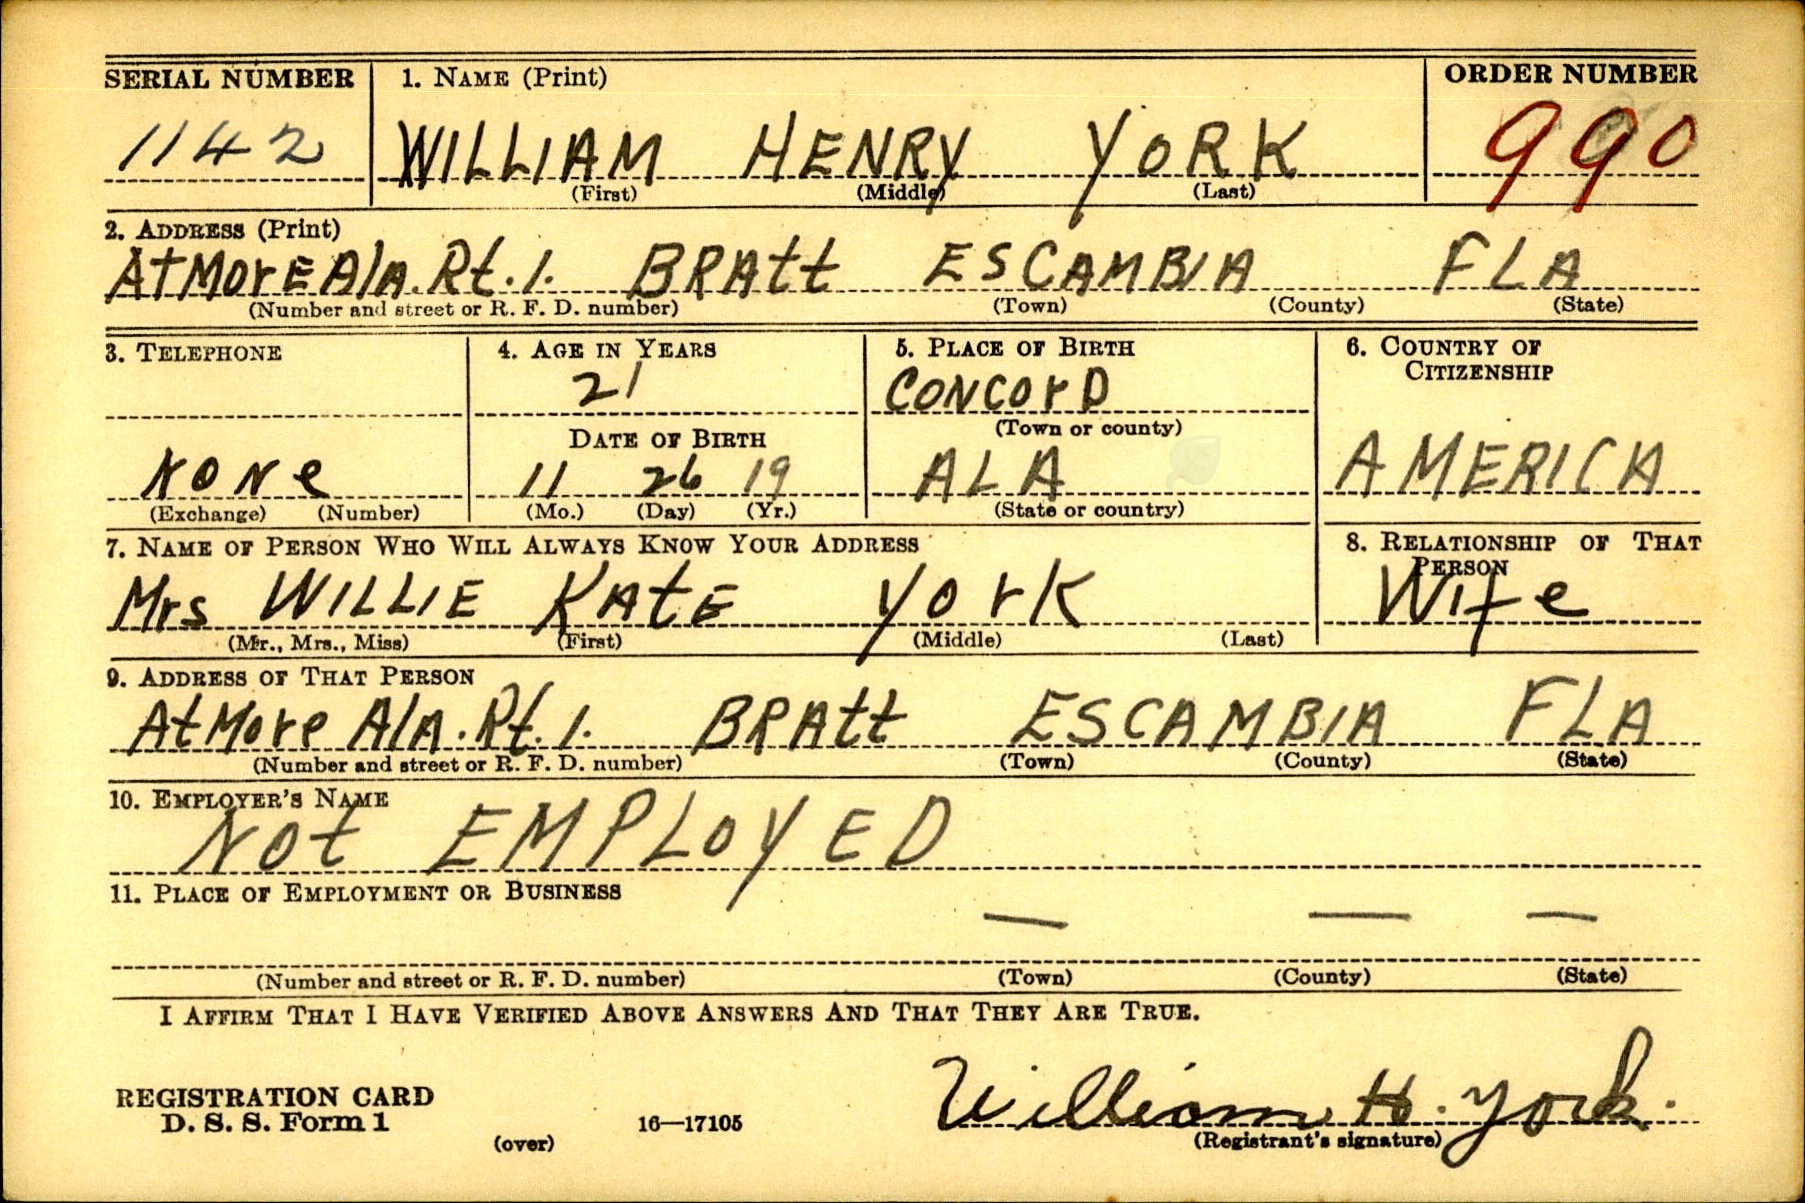 SERIAL NUMBER 1. NAME (Print) ORDER NUMBER
1142 WILLIAM HENRY YORK 990
(First) (Middle) (Last)
2. ADDRESS (Print)
AtMorE AlA. Rt. 1. BRAtt ESCAMBIA FLA
(Number and street or R. F. D. number) (Town) (County) (State)
3. TELEPHONE 4. AGE IN YEARS 5. PLACE OF BIRTH 6. COUNTRY OF CITIZENSHIP
21 CONCOrD
DATE OF BIRTH (Town or county)
NONe 11 26 19 ALA AMERICA
(Exchange) (Number) (Mo.) (Day) (Yr.) (State or country)
7. NAME OF PERSON WHO WILL ALWAYS KNOW YOUR ADDRESS 8. RELATIONSHIP OF THAT PERSON
Mrs WILLIE KAtE YOrK Wife
(Mr., Mrs., Miss) (First) (Middle) (Last)
9. ADDRESS OF THAT PERSON
AtMore AlA. Rt. 1. BRAtt ESCAMBIA FLA
(Number and street or R. F. D. number) (Town) (County) (State)
10. EMPLOYER'S NAME
NOt EMPLOYED
11. PLACE OF EMPLOYMENT OR BUSINESS
— — —
(Number and street or R. F. D. number) (Town) (County) (State)
I AFFIRM THAT I HAVE VERIFIED ABOVE ANSWERS AND THAT THEY ARE TRUE.
REGISTRATION CARD
D. S. S. Form 1 16—17105 William H. York.
(over) (Registrant's signature)